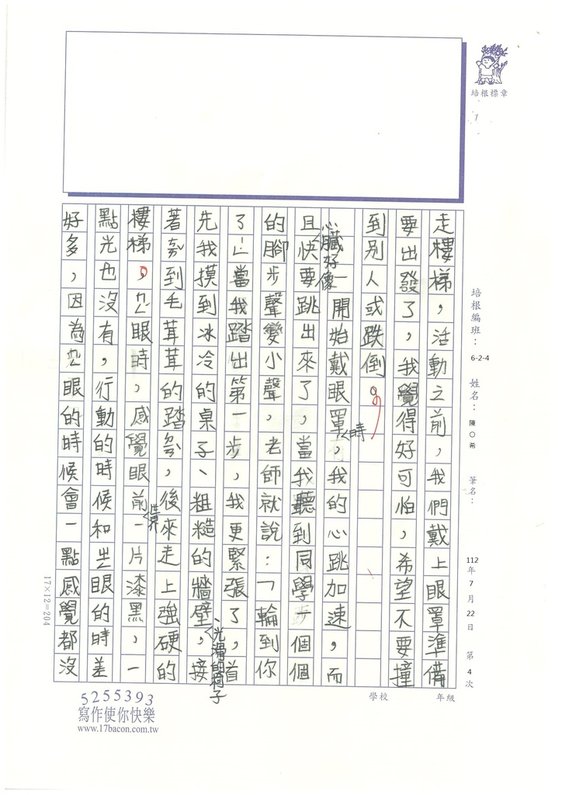 培根標章
1
培根編班：
6-2-4
姓名：
陳○希
筆名：
112年7月22日 第4次
學校
年級
走樓梯，活動之前，我們戴上眼罩準備
要出發了，我覺得好可怕，希望不要撞
到別人或跌倒。
一開始戴眼罩時，我的心跳加速，而
且心臟好像快要跳出來了，當我聽到同學步個個
的腳步聲變小聲，老師就說：「輪到你
了」當我踏出第一步，我更緊張了，首
先我摸到冰冷的桌子、粗糙的牆壁、光滑的椅子，接
著到毛茸茸的踏，後來走上強硬的
樓梯。眼時，感覺眼前一片漆黑，一
點光也沒有，行動的時候和眼的時差
好多，因為眼的時候會一點感覺都沒
17×12=204
5255393
寫作使你快樂
www.17bacon.com.tw